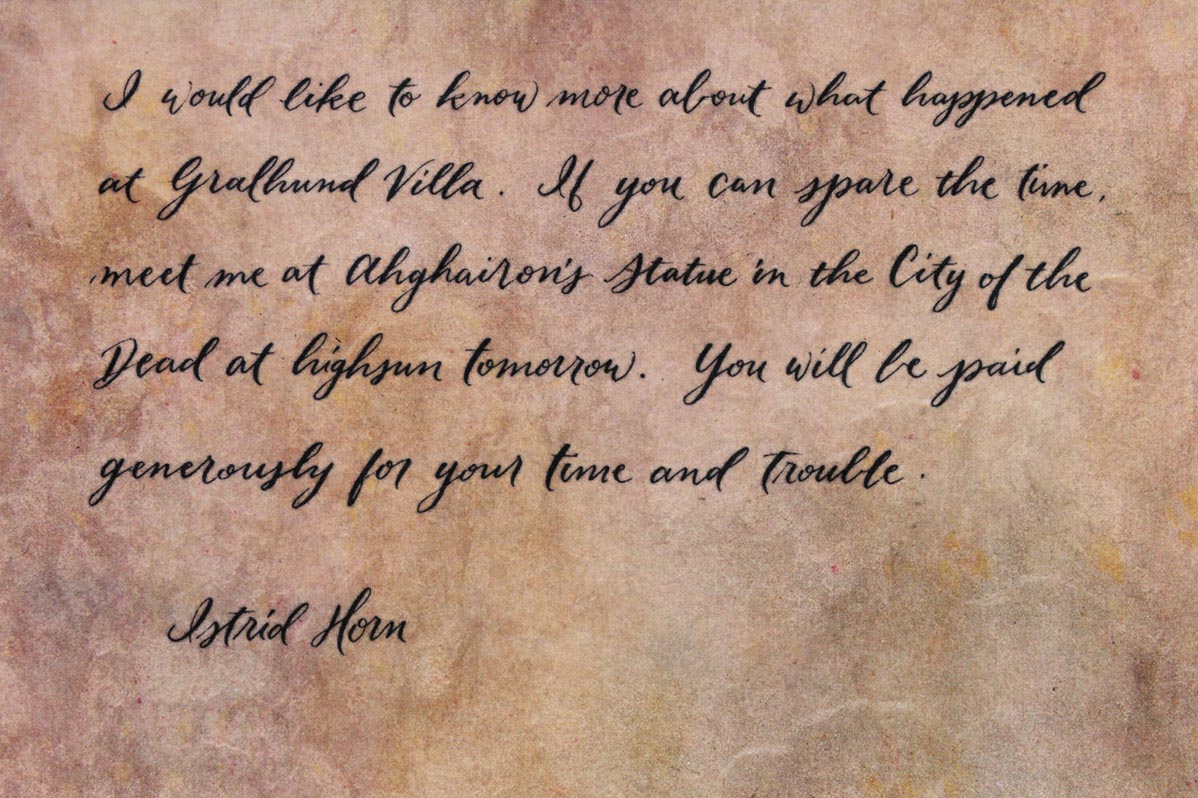 I would like to know more about what happened
at Gralhund Villa. If you can spare the time,
meet me at Ahghairon's Statue in the City of the
Dead at highsun tomorrow. You will be paid
generously for your time and trouble.
Istrid Horn